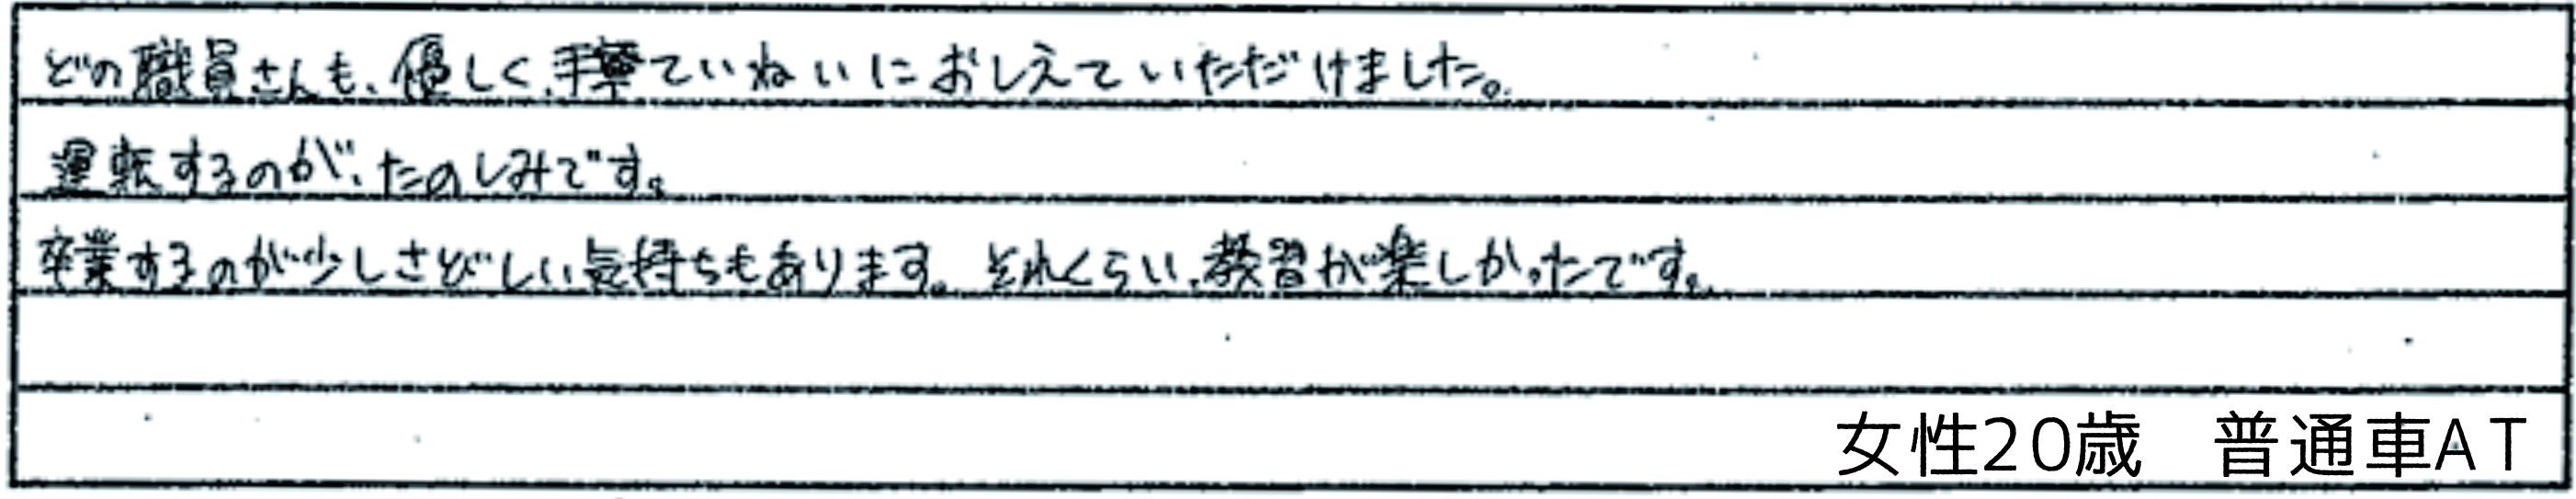 どの職員さんも、優しく、ていねいにおしえていただけました。
運転するのが、たのしみです。
卒業するのが少しさびしい気持ちもあります。それくらい、教習が楽しかったです。
女性20歳　普通車AT